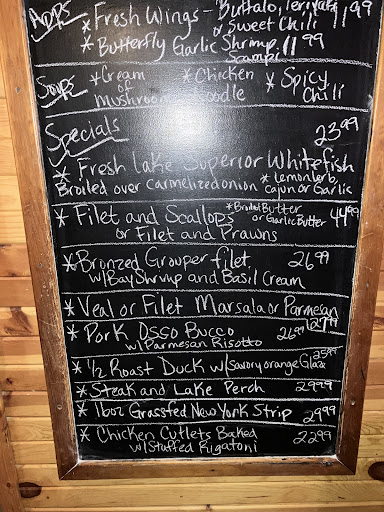 Apps * Fresh Wings - Buffalo, Teriyaki 11 99
or Sweet Chili
* Butterfly Garlic Shrimp 11 99
Scampi
Soups * Cream of Mushroom * Chicken Noodle * Spicy Chili
Specials
23 99
* Fresh Lake Superior Whitefish
Broiled over Carmelized onion * Lemon Herb, Cajun or Garlic
* Filet and Scallops * Broiled Butter or Garlic Butter 44 99
or Filet and Prawns
* Bronzed Grouper filet 26 99
w/ Bay Shrimp and Basil Cream
* Veal or Filet Marsala or Parmesan
* Pork Osso Bucco 26 99
w/ Parmesan Risotto
* 1/2 Roast Duck w/ Savory orange Glaze 25 99
* Steak and Lake Perch 29 99
* 16oz Grassfed New York Strip 29 99
* Chicken Cutlets Baked 22 99
w/ Stuffed Rigatoni